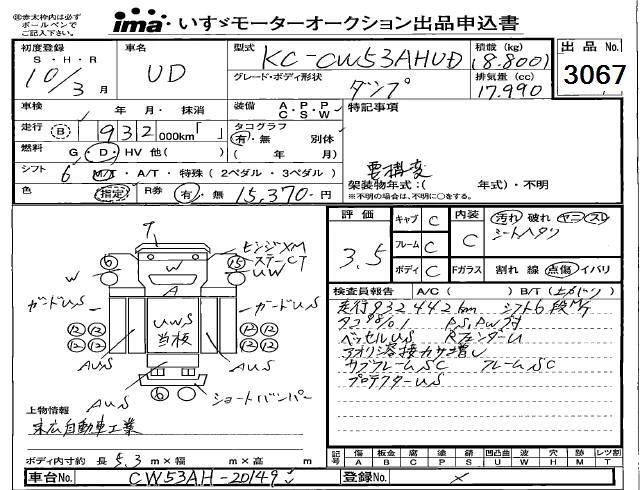 ㊟赤太枠内は必ず
ボールペンで
ご記入下さい。
ima・いすゞモーターオークション出品申込書
初度登録
S・H・R
10/3月
車名
UD
型式
KC-CW53AHUD
グレード・ボディ形状
ダンプ
積載(kg)
(8.800)
排気量(cc)
17.990
出品No.
3067
車検
年 月・抹消
装備 A.P.P C.S.W
特記事項
走行 B 932 000km「 」
タコグラフ
有・無 別体
( 年 月)
燃料 G・D・HV 他( )
シフト 6 M/T・A/T・特殊(2ペダル・3ペダル)
色 指定 R券 有・無 15,370-円
要構変
架装物年式:( 年式)・不明
※不明の場合は、年式不明に○をする。
評価
3.5
キャブ C
フレーム C
ボディ C
内装 C
Fガラス
汚れ 破れ ヤニ・スレ
シートヘタリ
割れ 線 点傷 イバリ
検査員報告 A/C( ) B/T(
走行932442km シフト6段M/T
タコ98/01 P.S,P.W付
ベッセルUS RフェンダーU
アオリ溶接カサ増し
サブフレームSC フレームSC
プロテクターUS
T
ヒンジXM
ステーCT
UW
W
W
A
6
15
ガードUS
ガードUS
UWS
当板
12 12
12 12
12 12
12 12
AUS
AUS
AUS
6
ショートバンパー
上物情報
末広自動車工業
ボディ内寸約 長 5.3 m×幅 m×高 m
記号 傷A 板金B 腐C 塗P 錆S 凹凸曲U 波W 穴H 跡M レンズ割T
車台No. CW53AH-20149
登録No. ×